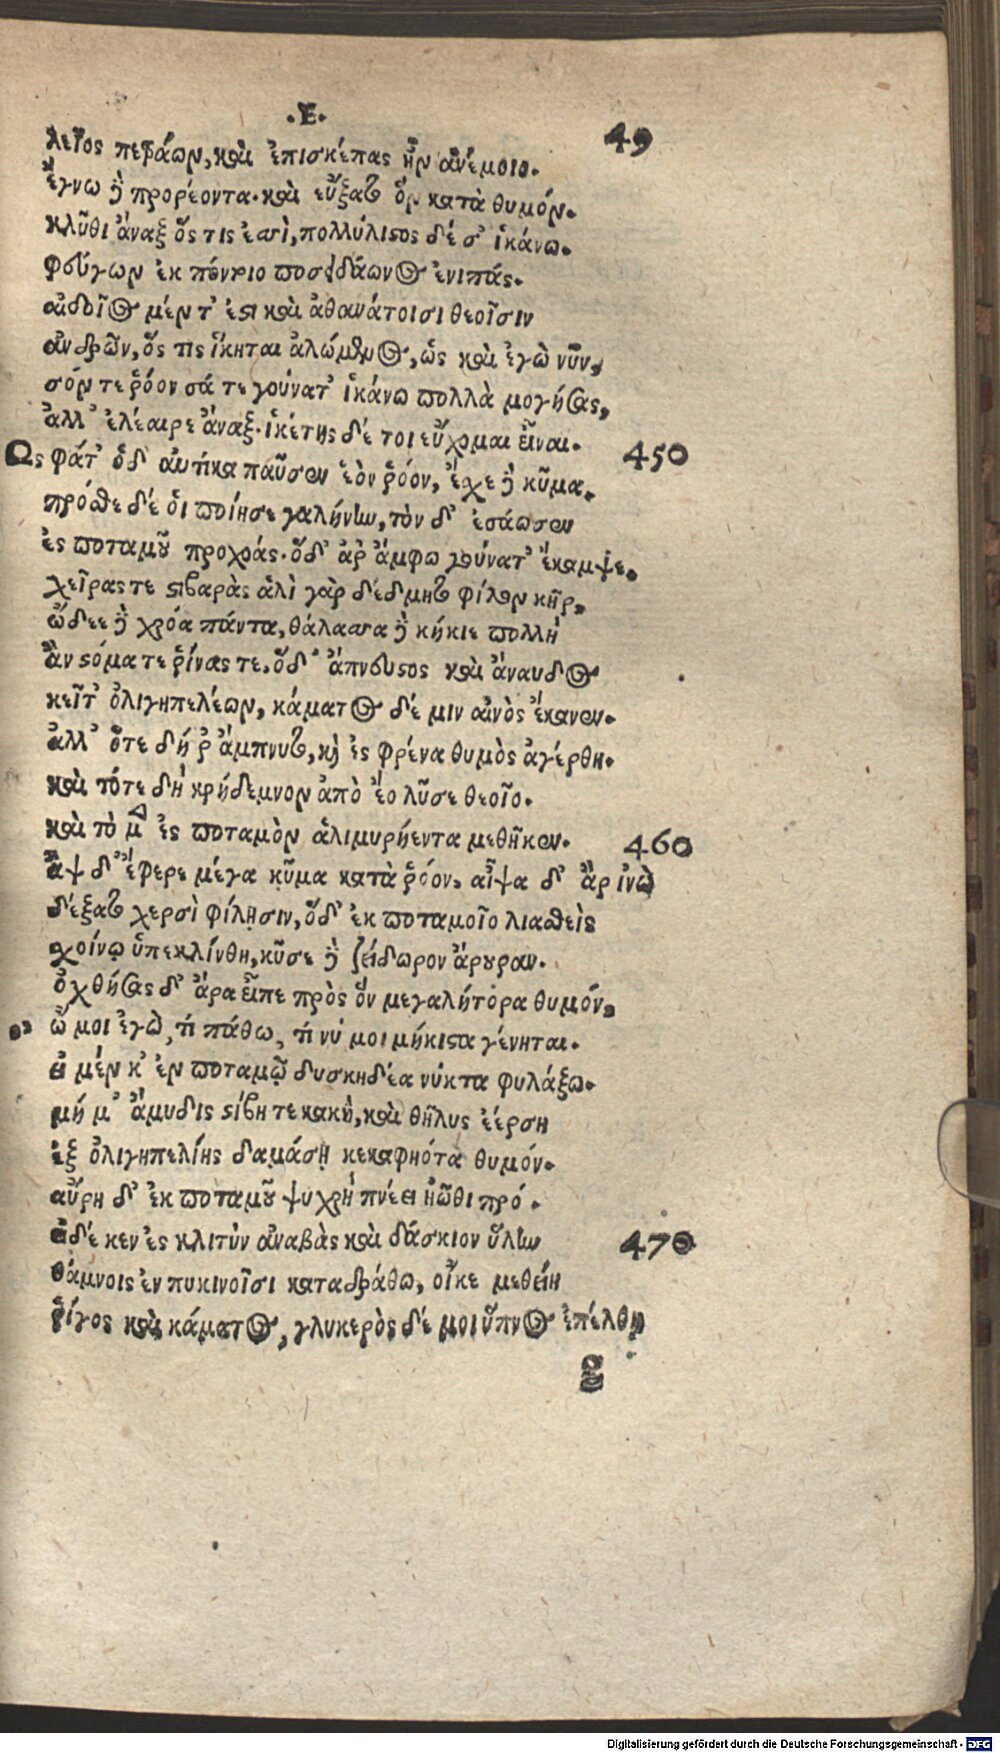 .Ε.
49
λεῖος πετράων, καὶ ἐπισκέπας ἦν ἀνέμοιο.
ἔγνω δὲ προρέοντα. καὶ εὔξατο ὃν κατὰ θυμόν.
κλῦθι ἄναξ ὅς τις ἐσσὶ, πολλύλιστος δέ σ' ἱκάνω.
φεύγων ἐκ πόντοιο ποσειδάωνος ἐνιπάς.
αἰδοῖος μέν τ' ἐστι καὶ ἀθανάτοισι θεοῖσιν
ἀνδρῶν, ὅς τις ἵκηται ἀλώμενος, ὡς καὶ ἐγὼ νῦν,
σόν τε ῥόον σά τε γούνατ' ἱκάνω πολλὰ μογήσας,
ἀλλ' ἐλέαιρε ἄναξ. ἱκέτης δέ τοι εὔχομαι εἶναι. 450
Ως φάτ' ὁ δ' αὐτίκα παῦσεν ἑὸν ῥόον, ἔχε δὲ κῦμα.
πρόσθε δέ οἱ ποίησε γαλήνην, τὸν δ' ἐσάωσεν
ἐς ποταμοῦ προχοάς. ὅδ' ἀρ ἄμφω γούνατ' ἔκαμψε.
χεῖρας τε στιβαρὰς ἁλὶ γὰρ δέδμητο φίλον κῆρ,
ᾤδεε δὲ χρόα πάντα, θάλασσα δὲ κήκιε πολλὴ
ἂν στόμα τε ῥίνας τε. ὅδ' ἄπνευστος καὶ ἄναυδος
κεῖτ' ὀλιγηπελέων, κάματος δέ μιν αἰνὸς ἵκανεν.
ἀλλ' ὅτε δή ῥ ἄμπνυτο, καὶ ἐς φρένα θυμὸς ἀγέρθη.
καὶ τότε δὴ κρήδεμνον ἀπὸ ἕο λῦσε θεοῖο.
καὶ τὸ μὲν ἐς ποταμὸν ἁλιμυρήεντα μεθῆκεν. 460
ἂψ δ' ἔφερε μέγα κῦμα κατὰ ῥόον, αἶψα δ' ἂρ ἰνὼ
δέξατο χερσὶ φίλησιν, ὅδ' ἐκ ποταμοῖο λιασθεὶς
χοίνῳ ὑπεκλίνθη, κῦσε δὲ ζείδωρον ἄρουραν.
ὀχθήσας δ' ἄρα εἶπε πρὸς ὃν μεγαλήτορα θυμόν,
ὤ μοι ἐγὼ, τί πάθω, τί νύ μοι μήκιστα γένηται.
εἰ μέν κ' ἐν ποταμῷ δυσκηδέα νύκτα φυλάξω.
μή μ' ἄμυδις στίβη τε κακὴ, καὶ θῆλυς ἐέρση
ἐξ ὀλιγηπελίης δαμάσῃ κεκαφηότα θυμόν.
αὔρη δ' ἐκ ποταμοῦ ψυχρὴ πνέει ἠῶθι πρό.
εἰ δέ κεν ἐς κλιτὺν ἀναβὰς καὶ δάσκιον ὕλην 470
θάμνοις ἐν πυκινοῖσι καταδράθω, οἴκε μεθείη
ῥίγος καὶ κάματος, γλυκερὸς δέ μοι ὕπνος ἐπέλθῃ
g
Digitalisierung gefördert durch die Deutsche Forschungsgemeinschaft - DFG